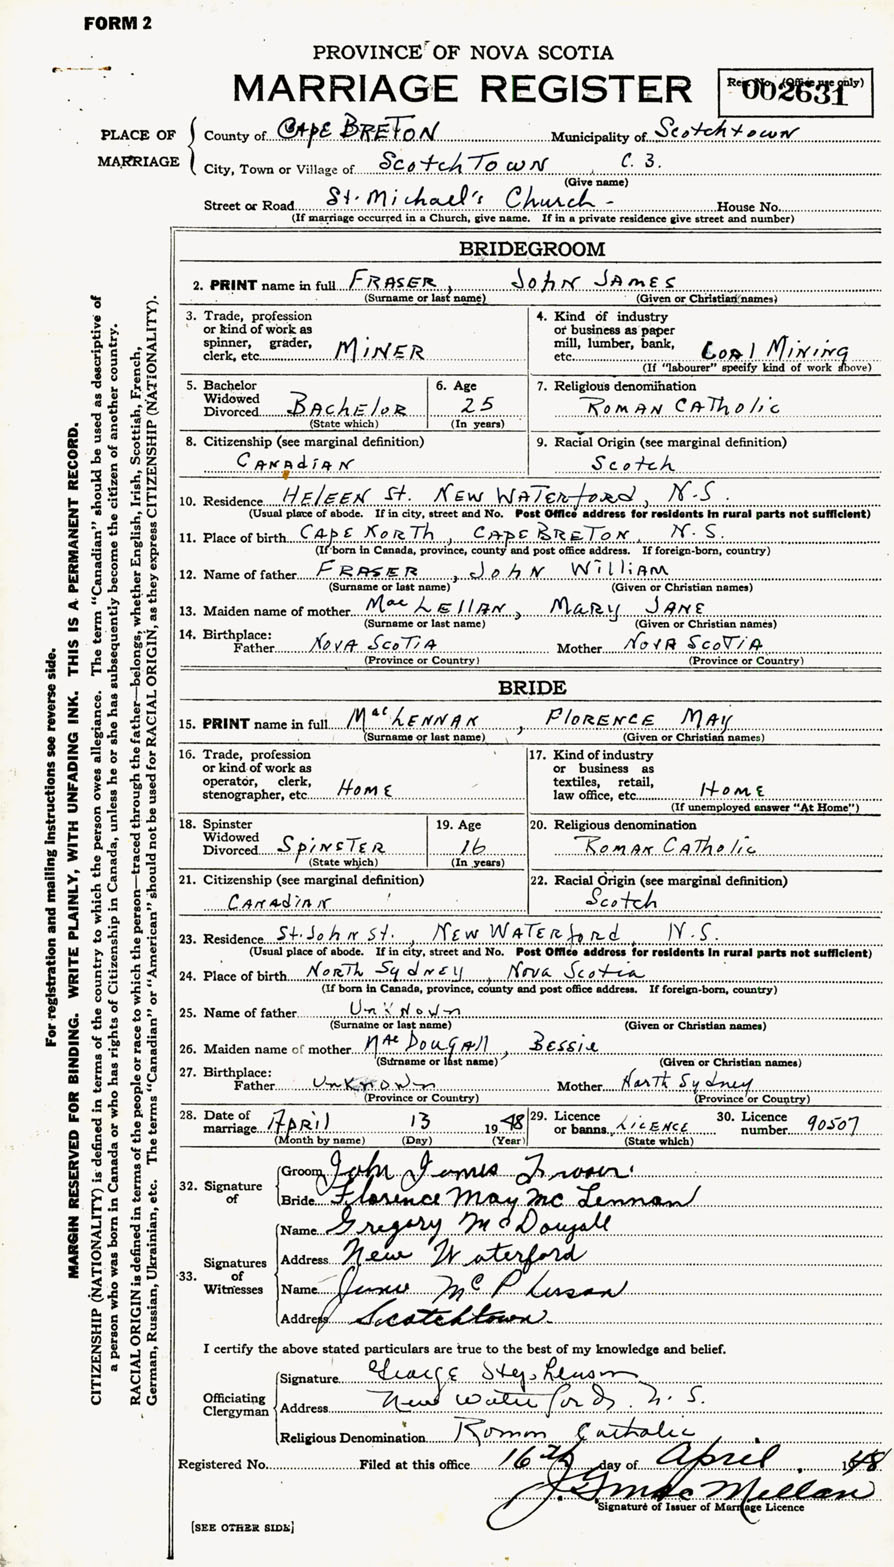 FORM 2
PROVINCE OF NOVA SCOTIA
MARRIAGE REGISTER
Reg. No. (Office use only)
002631
PLACE OF MARRIAGE
County of CAPE BRETON Municipality of Scotchtown
City, Town or Village of Scotch Town, C. B.
(Give name)
Street or Road St. Michael's Church - House No.
(If marriage occurred in a Church, give name. If in a private residence give street and number)
BRIDEGROOM
2. PRINT name in full FRASER, JOHN JAMES
(Surname or last name) (Given or Christian names)
3. Trade, profession or kind of work as spinner, grader, clerk, etc. MINER
4. Kind of industry or business as paper mill, lumber, bank, etc. Coal Mining
(If "labourer" specify kind of work above)
5. Bachelor Widowed Divorced BACHELOR
(State which)
6. Age 25
(In years)
7. Religious denomination ROMAN CATholic
8. Citizenship (see marginal definition) CANAdiAN
9. Racial Origin (see marginal definition) Scotch
10. Residence HELEEN St. NEW WATERford, N.S.
(Usual place of abode. If in city, street and No. Post Office address for residents in rural parts not sufficient)
11. Place of birth CAPE NORTH, CAPE BRETON, N.S.
(If born in Canada, province, county and post office address. If foreign-born, country)
12. Name of father FRASER, JOHN William
(Surname or last name) (Given or Christian names)
13. Maiden name of mother MacLEllAN, MARY JANE
(Surname or last name) (Given or Christian names)
14. Birthplace:
Father NOVA SCOTIA Mother NOVA SCOTIA
(Province or Country) (Province or Country)
BRIDE
15. PRINT name in full MacLENNAN, FLORENCE MAY
(Surname or last name) (Given or Christian names)
16. Trade, profession or kind of work as operator, clerk, stenographer, etc. HOME
17. Kind of industry or business as textiles, retail, law office, etc. HOME
(If unemployed answer "At Home")
18. Spinster Widowed Divorced SPINSTER
(State which)
19. Age 16
(In years)
20. Religious denomination ROMAN CATHOLIC
21. Citizenship (see marginal definition) CANAdIAN
22. Racial Origin (see marginal definition) Scotch
23. Residence St. John St., NEW WATERford, N.S.
(Usual place of abode. If in city, street and No. Post Office address for residents in rural parts not sufficient)
24. Place of birth NORTH Sydney, Nova Scotia
(If born in Canada, province, county and post office address. If foreign-born, country)
25. Name of father UnKNown
(Surname or last name) (Given or Christian names)
26. Maiden name of mother MacDougall, BESSIE
(Surname or last name) (Given or Christian names)
27. Birthplace:
Father UnKnown Mother North Sydney
(Province or Country) (Province or Country)
28. Date of marriage APRIL 13 1948
(Month by name) (Day) (Year)
29. Licence or banns LICENCE
(State which)
30. Licence number 90507
32. Signature of
Groom John James Fraser
Bride Florence May Mc Lennan
33. Signatures of Witnesses
Name Gregory McDougall
Address New Waterford
Name McPherson
Address Scotchtown
I certify the above stated particulars are true to the best of my knowledge and belief.
Officiating Clergyman
Signature George Stephenson
Address New Waterford, N.S.
Religious Denomination Roman Catholic
Registered No. Filed at this office 16th day of April 1948
J. G. Mac Millan
Signature of Issuer of Marriage Licence
[SEE OTHER SIDE]
For registration and mailing instructions see reverse side.
MARGIN RESERVED FOR BINDING. WRITE PLAINLY, WITH UNFADING INK. THIS IS A PERMANENT RECORD.
CITIZENSHIP (NATIONALITY) is defined in terms of the country to which the person owes allegiance. The term "Canadian" should be used as descriptive of
a person who was born in Canada or who has rights of Citizenship in Canada, unless he or she has subsequently become the citizen of another country.
RACIAL ORIGIN is defined in terms of the people or race to which the person—traced through the father—belongs, whether English, Irish, Scottish, French,
German, Russian, Ukrainian, etc. The terms "Canadian" or "American" should not be used for RACIAL ORIGIN, as they express CITIZENSHIP (NATIONALITY).